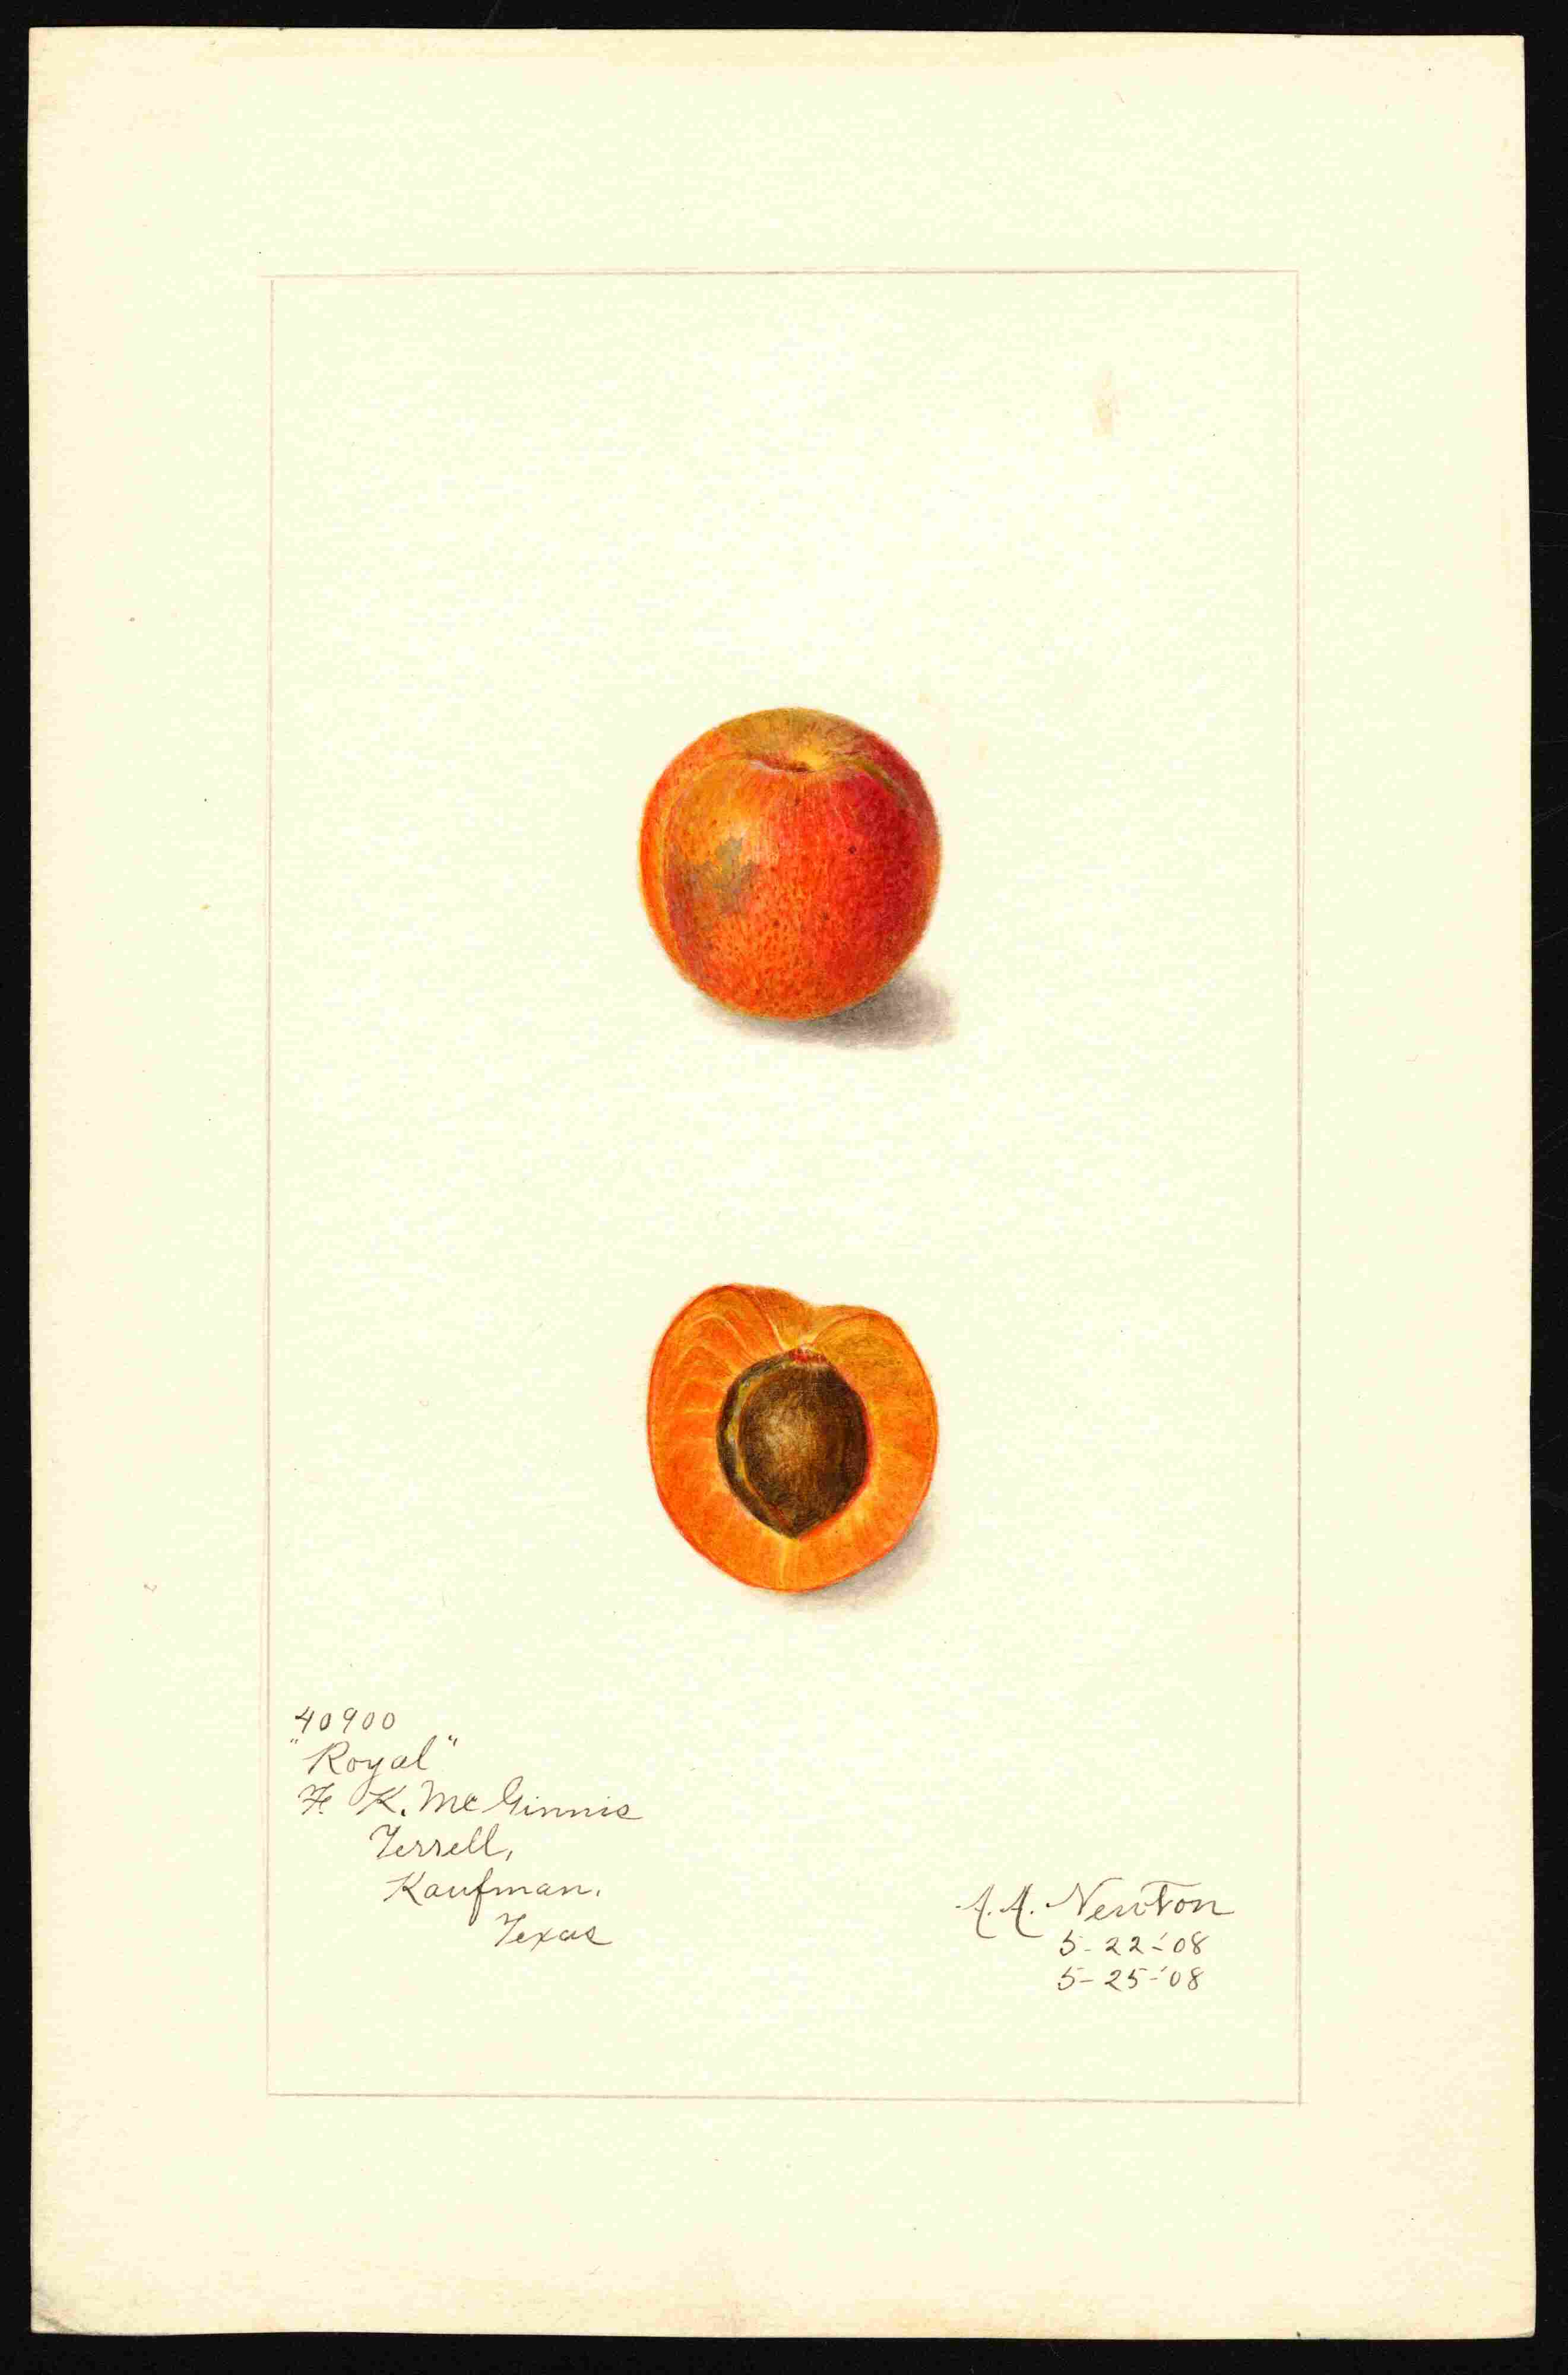 40900
"Royal"
F. K. McGinnis
Terrell,
Kaufman.
Texas
A. A. Newton
5-22-'08
5-25-'08